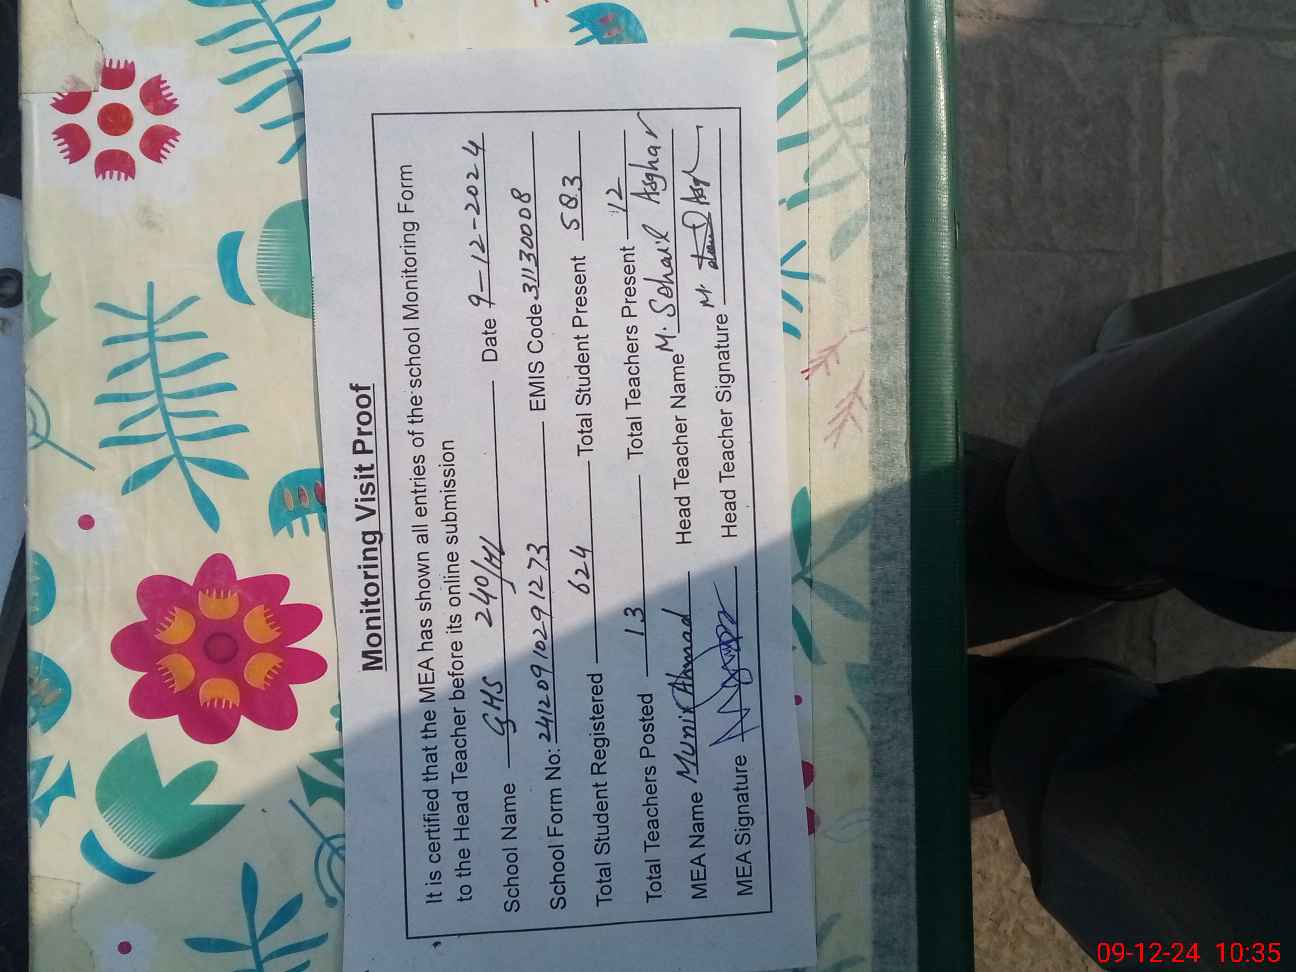 Monitoring Visit Proof
It is certified that the MEA has shown all entries of the school Monitoring Form
to the Head Teacher before its online submission
School Name GHS 240/HL Date 9-12-2024
School Form No: 24120910291273 EMIS Code 31130008
Total Student Registered 624 Total Student Present 583
Total Teachers Posted 13 Total Teachers Present 12
MEA Name Munir Ahmad Head Teacher Name M. Sohail Asghar
MEA Signature Head Teacher Signature M.
09-12-24 10:35